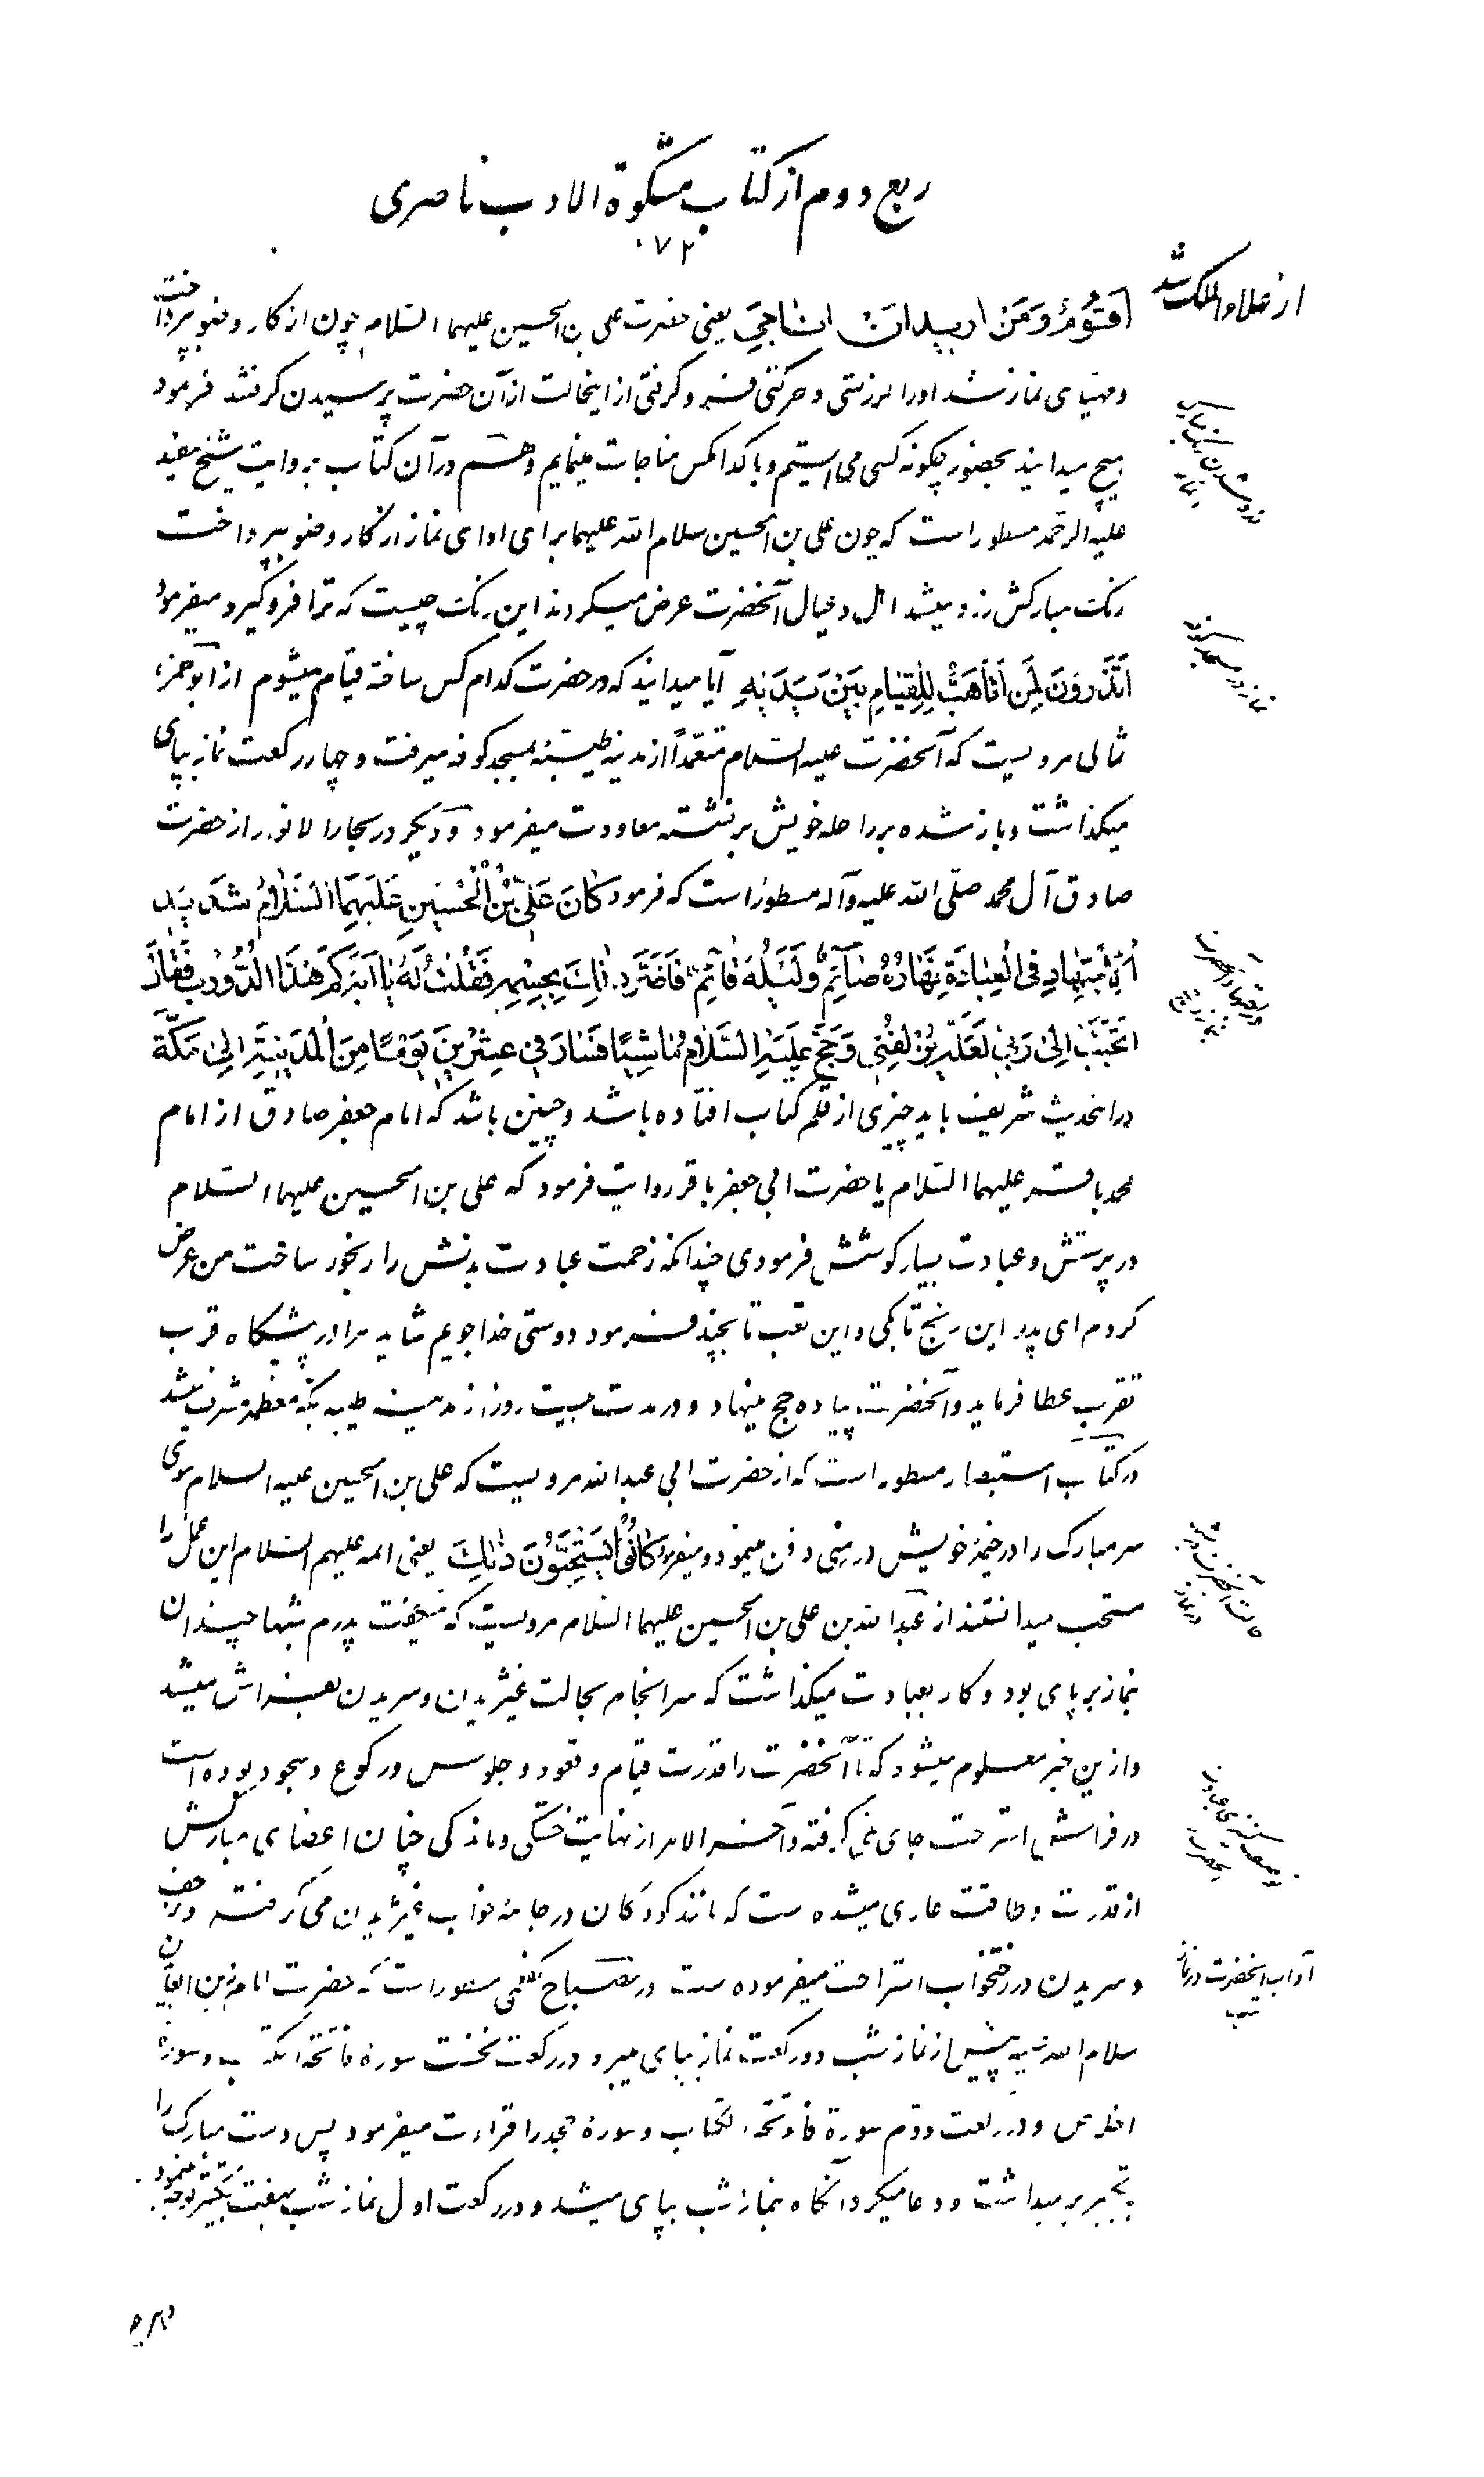 ربع دوم از کتاب مشکوة الادب ناصری
۷۲
از علاء الملک شد
اَقُومُ وَمَنْ اریدان اناجِیَ یعنی حضرت علی بن الحسین علیهما السّلام چون از کار وضو بپرداخت
و مهیای نماز شد او را لرزشی و حرکتی فرو گرفتی از اینحالت از آن حضرت پرسیدن گرفتند فرمود
هیچ میدانید بحضور چگونه کسی می ایستیم و با کدام کس مناجات مینمایم و هم در آن کتاب بروایت شیخ مفید
علیه الرحمه مسطور است که چون علی بن الحسین سلام الله علیهما برای ادای نماز از کار وضو بپرداخت
رنگ مبارکش زرد میشد اهل و عیال آنحضرت عرض میکردند این رنگ چیست که ترا فرو گیرد میفرمود
اَتَدْرُونَ لِمَن اَتَاَهَّبُ لِلْقِیٰامِ بَیْنَ یَدَیْهِ آیا میدانید که در حضرت کدام کس ساخته قیام میشوم از ابوحمزه
ثمالی مرویست که آنحضرت علیه السّلام متعمّداً از مدینه طیّبه بمسجد کوفه میرفت و چهار رکعت نماز بپای
میگذاشت و باز شده بر راحله خویش برنشسته معاودت میفرمود و دیگر در بحار الانوار از حضرت
صادق آل محمد صلّی الله علیه وآله مسطور است که فرمود کٰانَ عَلِیُّ بْنُ الْحُسَیْنِ عَلَیْهِمَا السَّلٰامُ شَدیدَ
الْاِجْتِهٰادِ فِی الْعِبٰادَةِ نَهٰارُهُ صٰآئِمٌ وَلَیْلُهُ قٰآئِمٌ فَاَضَرَّ ذٰلِکَ بِجِسْمِهِ فَقُلْتُ لَهُ یٰا اَبَه کَمْ هٰذَا الدُّؤُبُ فَقٰالَ
اَتَحَبَّبُ اِلیٰ رَبّی لَعَلَّهُ یُزْلِفُنی وَحَجَّ عَلَیْهِ السَّلٰامُ مٰاشِیًا فَسٰارَ فی عِشْرینَ یَوْمًا مِنَ الْمَدینَةِ اِلیٰ مَکَّةَ
در اینحدیث شریف باید چیزی از قلم کتاب افتاده باشد و چنین باشد که امام جعفر صادق از امام
محمد باقر علیهما السّلام یا حضرت ابی جعفر باقر روایت فرمود که علی بن الحسین علیهما السّلام
در پرستش و عبادت بسیار کوشش فرمودی چندانکه زحمت عبادت بدنش را رنجور ساخت من عرض
کردم ای پدر این رنج تا بکی و این تعب تا بچند فرمود دوستی خدا جویم شاید مرا در پیشگاه قرب
تقرب عطا فرماید و آنحضرت پیاده حج مینهاد و در مدت بیست روز از مدینه طیبه بمکه معظمه مشرف میشد
در کتاب استبصار مسطور است که از حضرت ابی عبدالله مرویست که علی بن الحسین علیه السلام موی
سر مبارک را در خیمه خویش در منی دفن مینمود و میفرمود کٰانُوا یَسْتَحِبُّونَ ذٰلِکَ یعنی ائمه علیهم السّلام این عمل را
مستحب میدانستند از عبدالله بن علی بن الحسین علیهما السّلام مرویست که میگفت پدرم شبها چندان
نماز بر پای بود و کار بعبادت میگذاشت که سرانجام بحالت غیژیدن و سریدن بفراش میشد
و ازین خبر معلوم میشود که تا آنحضرت را قدرت قیام و قعود و جلوس و رکوع و سجود بوده است
در فراش استراحت جای نمی گرفته و آخر الامر از نهایت خستگی و ماندگی چنان اعضای مبارکش
از قدرت و طاقت عاری میشده ست که مانند کودکان در جامه خواب غیژیدن می گرفته و بزحف
و سریدن در رختخواب استراحت میفرموده ست در مصباح کفعمی مسطور است که حضرت امام زین العابدین
سلام الله علیه پیش از نماز شب دو رکعت نماز بپای میبرد در رکعت نخست سوره فاتحة الکتاب و سوره
اخلاص و در رکعت دوّم سورة فاتحة الکتاب و سوره جحد را قراءت میفرمود پس دست مبارک را
بتکبیر برمیداشت و دعا میکرد آنگاه بنماز شب بپای میشد و در رکعت اول نماز شب بهفت تکبیر توجه مینمود
نماز در مسجد کوفه
آداب آنحضرت در نماز
شب